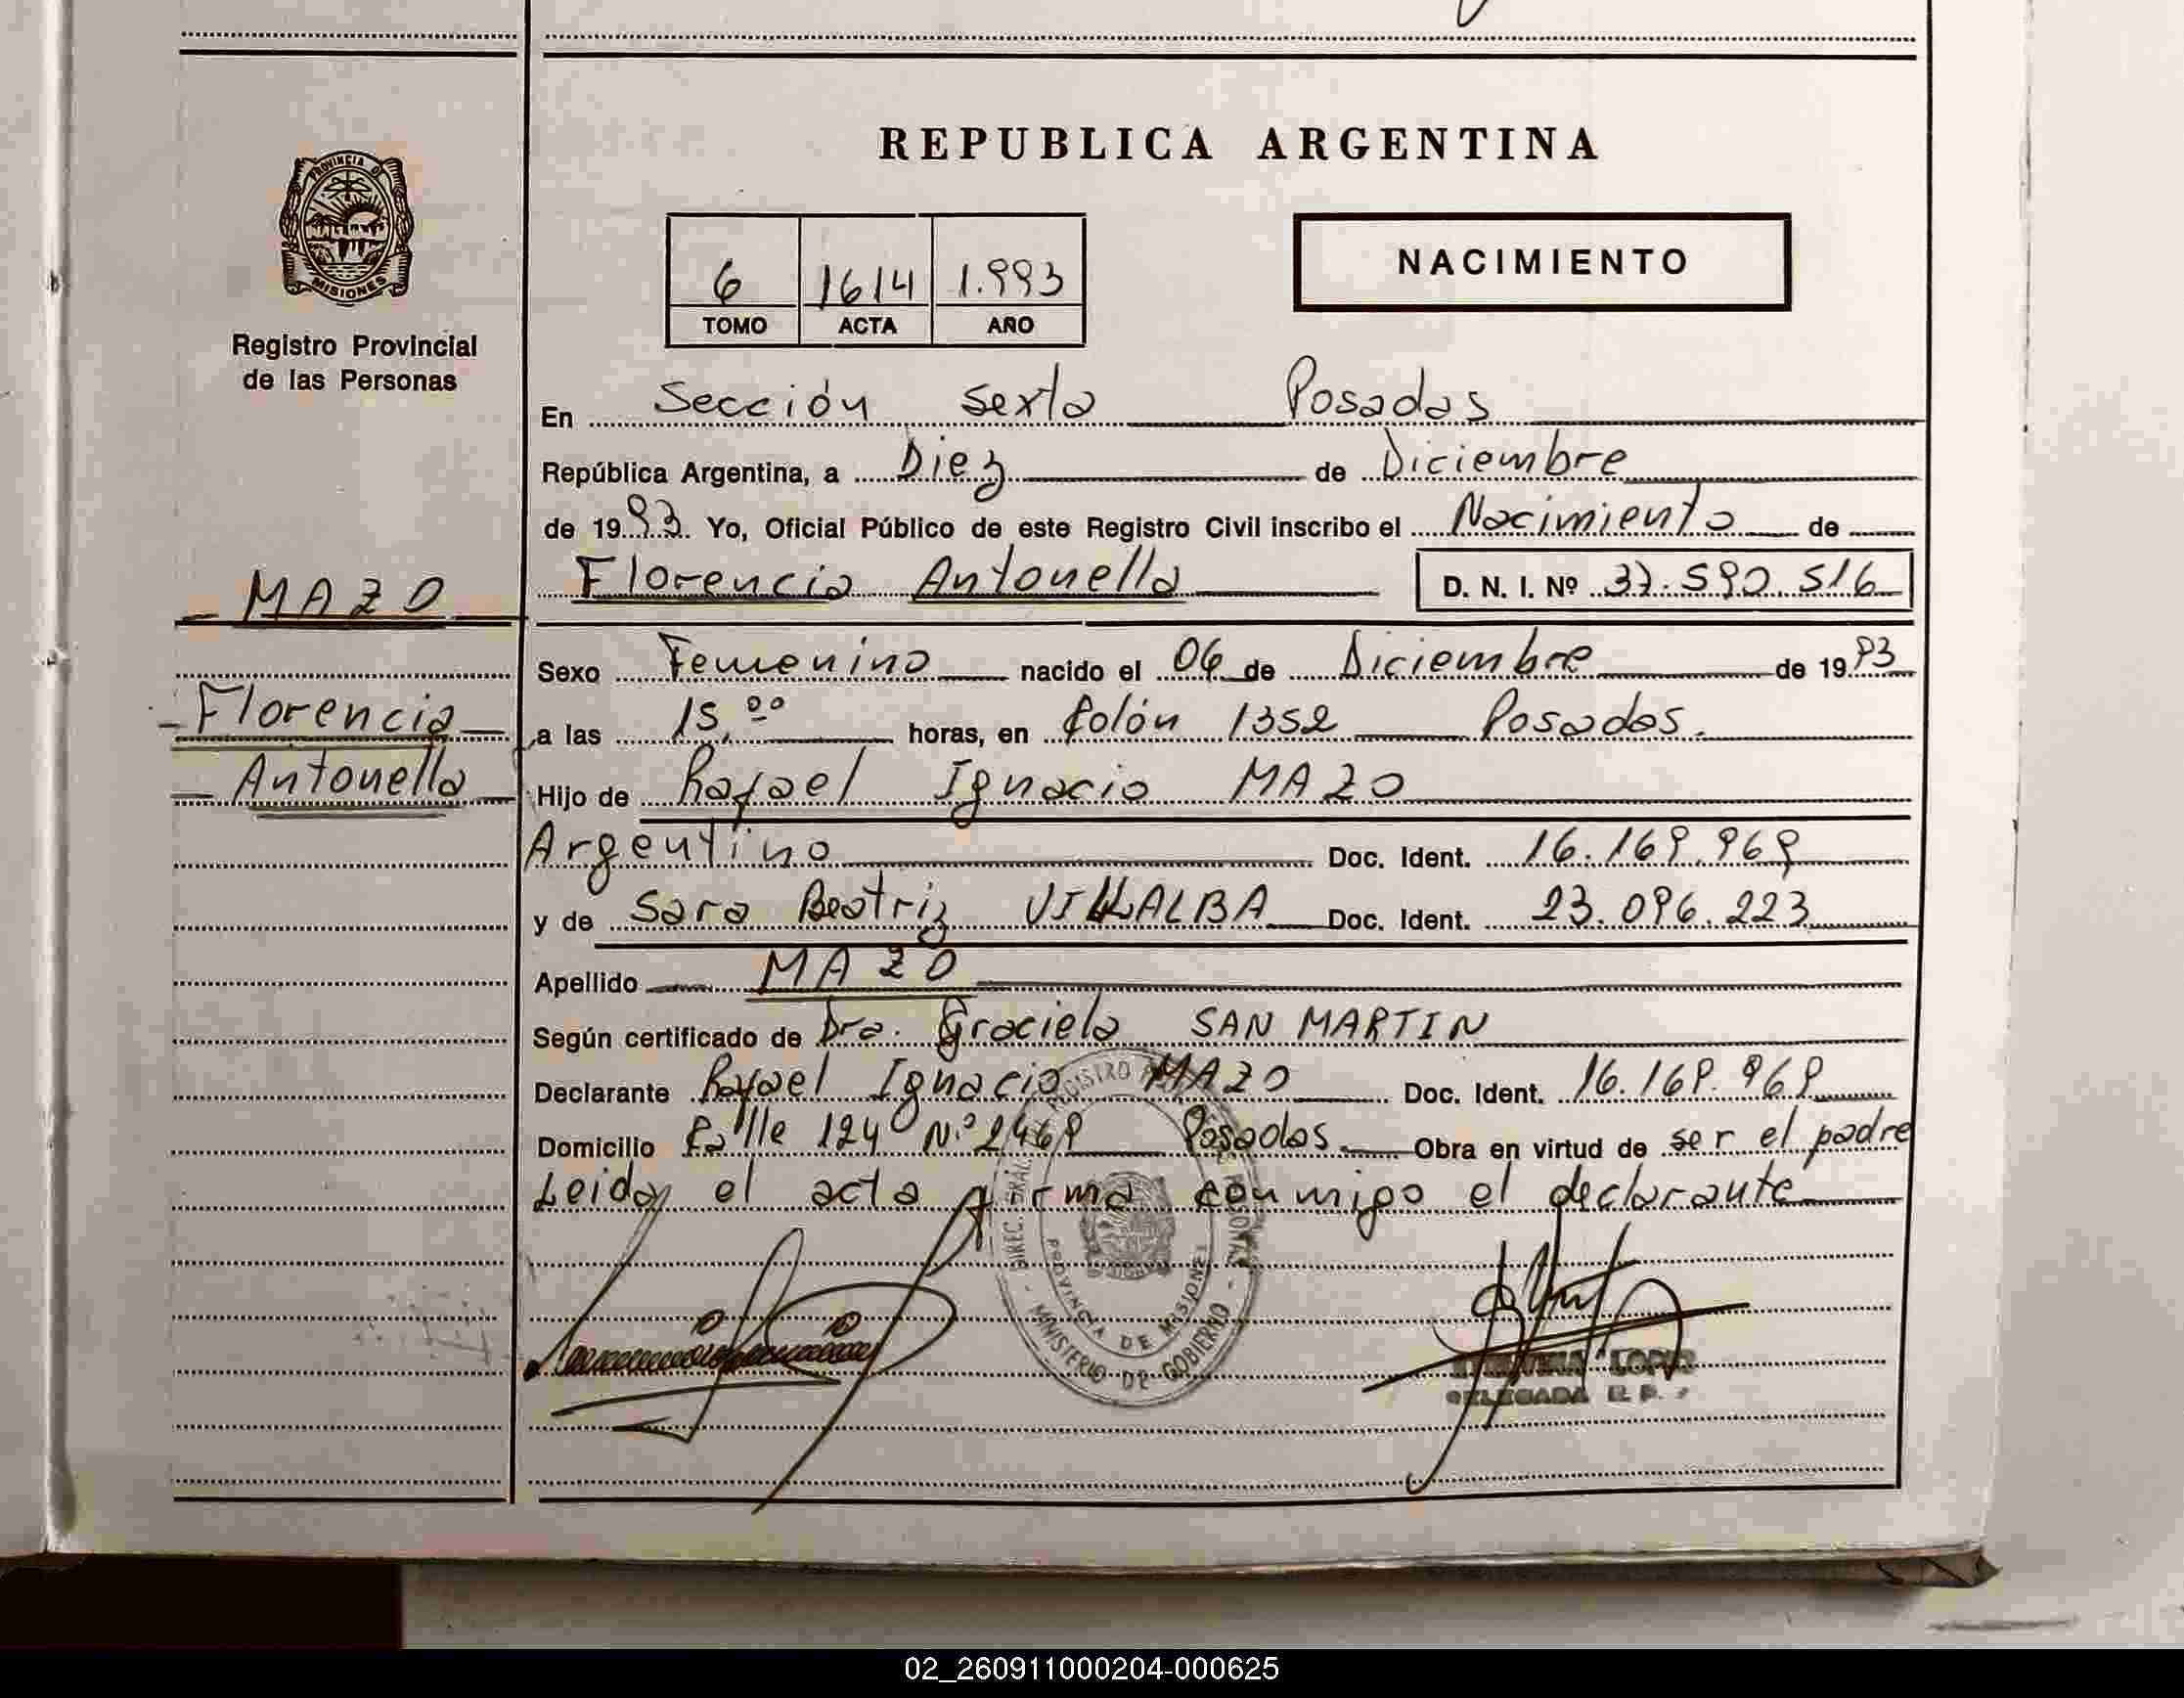 REPUBLICA ARGENTINA
PROVINCIA D MISIONES
Registro Provincial
de las Personas
NACIMIENTO
6 1614 1.993
TOMO ACTA AÑO
En Sección sexta Posadas
República Argentina, a Diez de Diciembre
de 1993. Yo, Oficial Público de este Registro Civil inscribo el Nacimiento de
MAZO
Florencia Antonella D. N. I. Nº 37.590.516
Sexo Femenino nacido el 06 de Diciembre de 1993
Florencia
a las 15,00 horas, en Colón 1352 Posadas.
Antonella
Hijo de Rafael Ignacio MAZO
Argentino Doc. Ident. 16.169.969
y de Sara Beatriz VILLALBA Doc. Ident. 23.096.223
Apellido MAZO
Según certificado de Dra. Graciela SAN MARTIN
Declarante Rafael Ignacio MAZO Doc. Ident. 16.169.969
Domicilio Calle 124 N.º 2469 Posadas. Obra en virtud de ser el padre
Leida el acta firma conmigo el declarante
DIREC. GRAL. REGISTRO PERSONAS
PROVINCIA DE MISIONES
- MINISTERIO DE GOBIERNO -
LOPEZ
DELEGADA R. P.
02_260911000204-000625